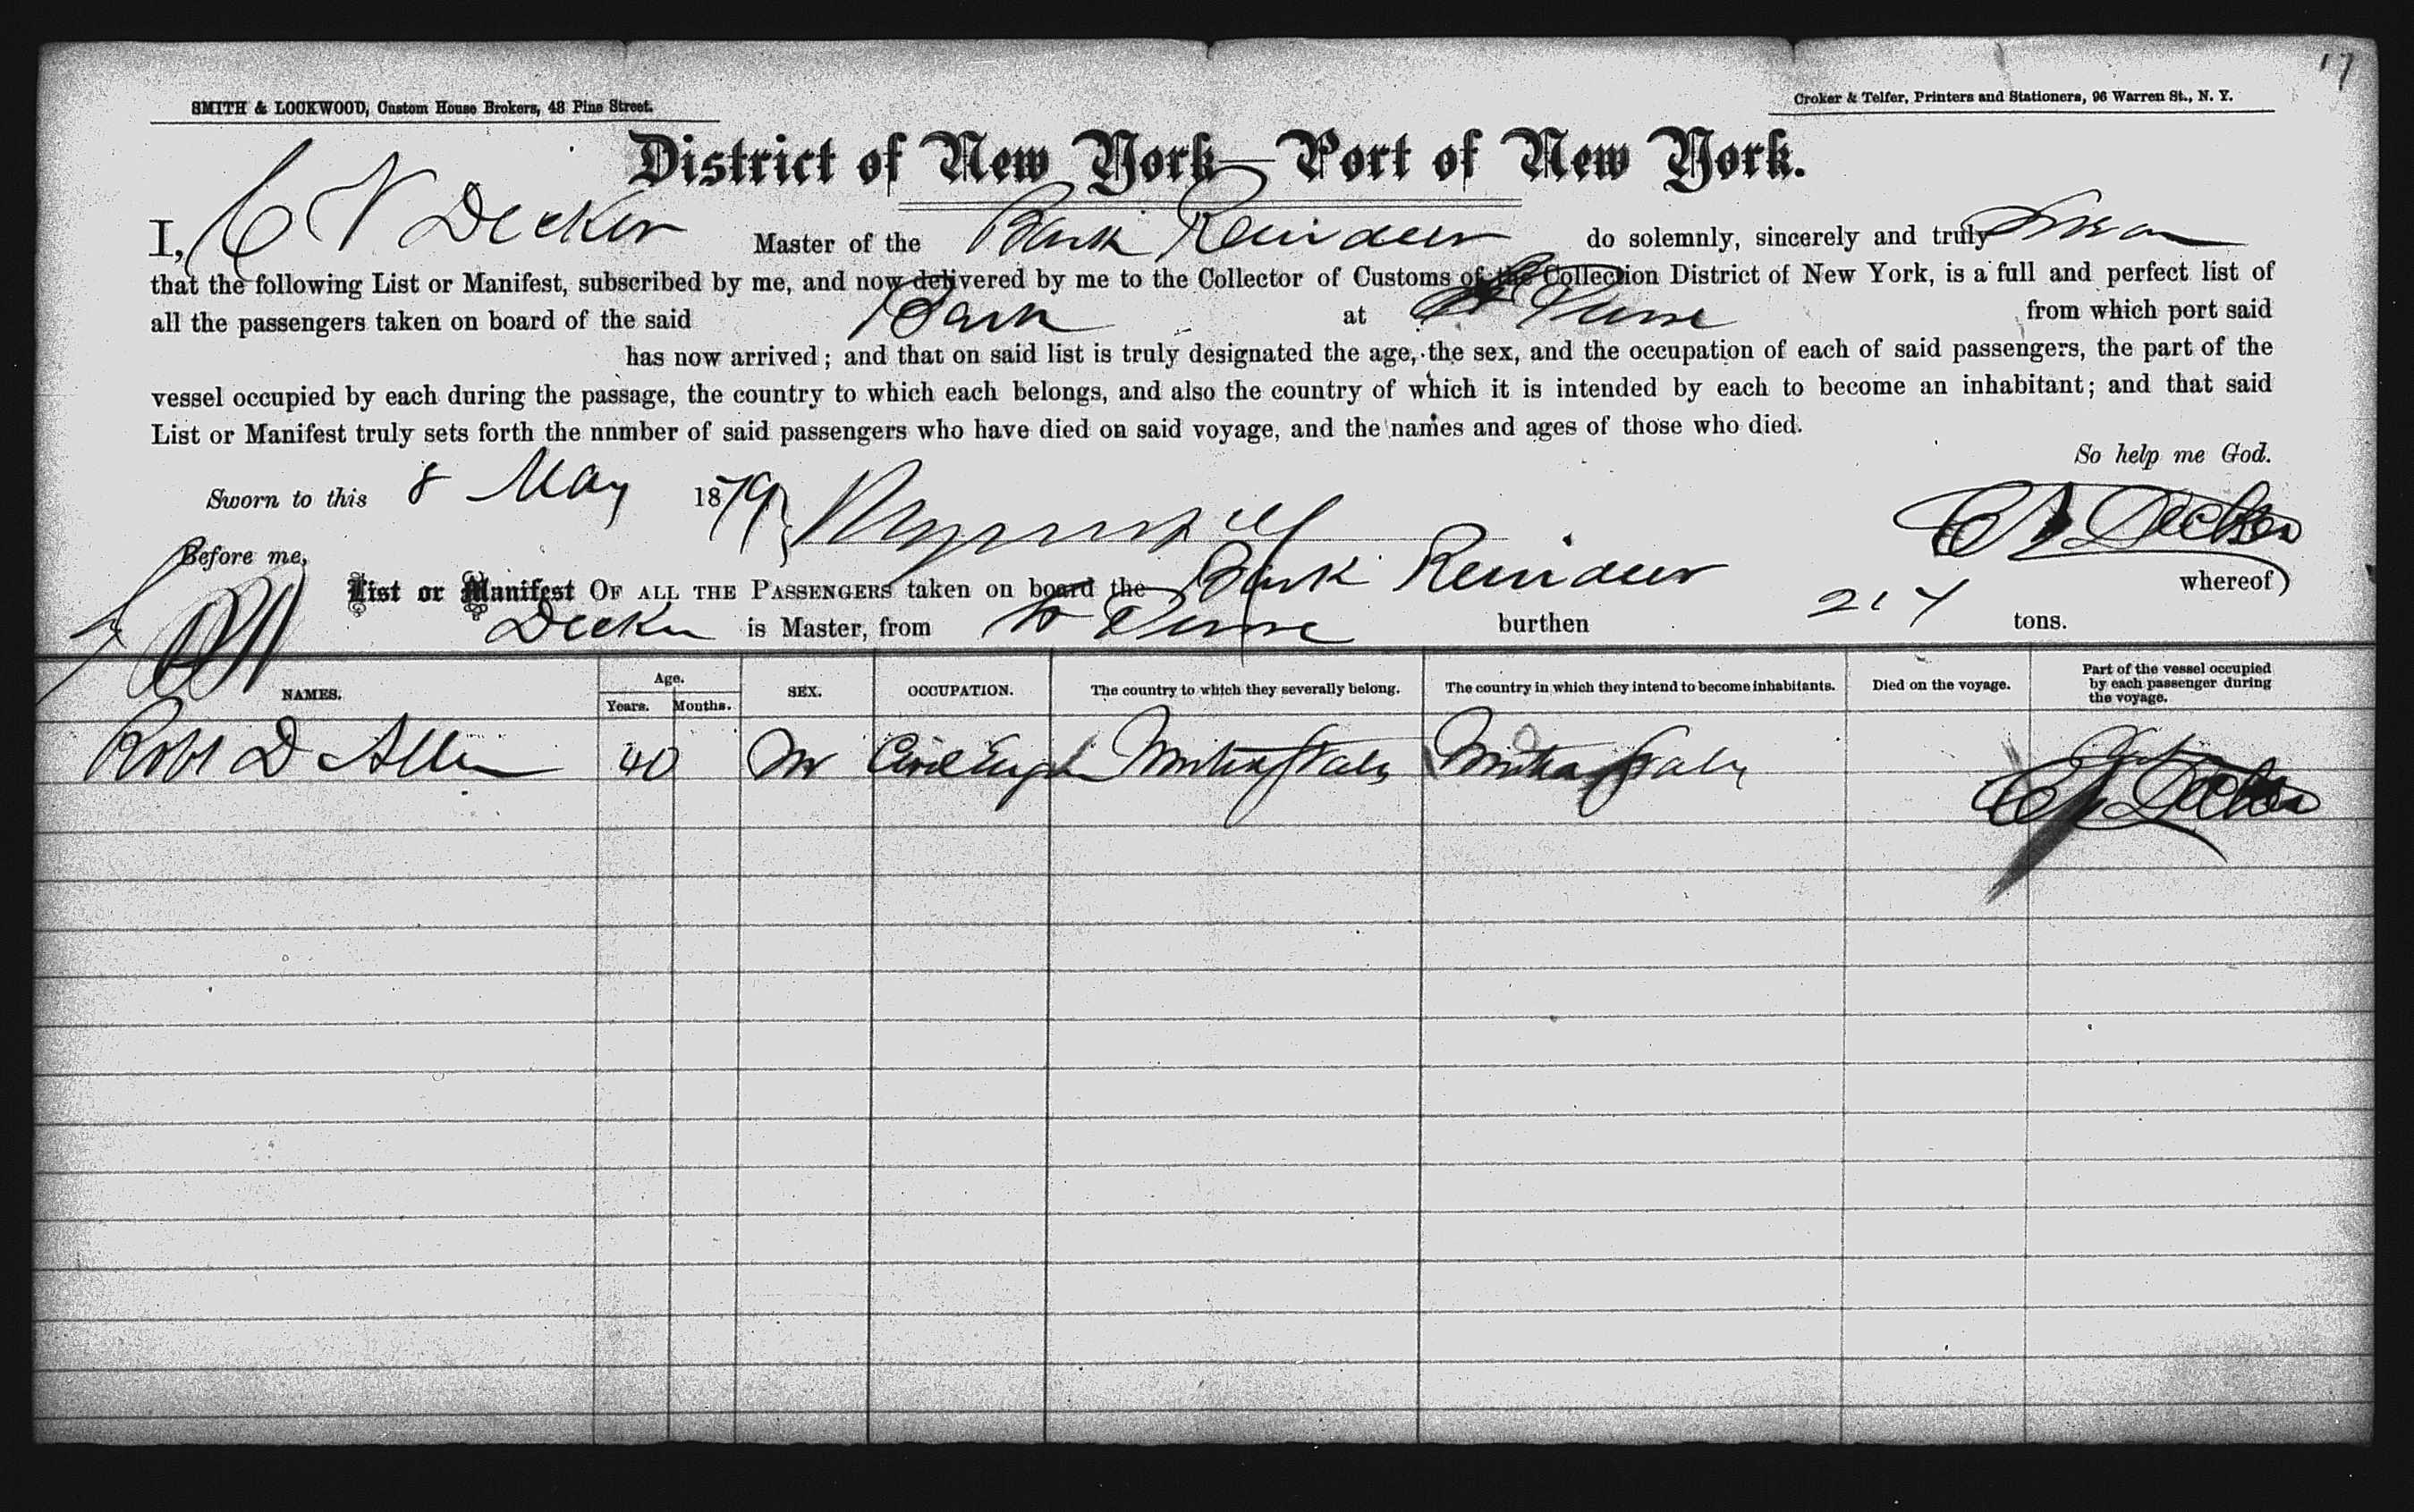 17
SMITH & LOCKWOOD, Custom House Brokers, 48 Pine Street.
Croker & Telfer, Printers and Stationers, 96 Warren St., N. Y.
District of New York—Port of New York.
I, C V Decker Master of the Bark Reindeer do solemnly, sincerely and truly Swear
that the following List or Manifest, subscribed by me, and now delivered by me to the Collector of Customs of the Collection District of New York, is a full and perfect list of
all the passengers taken on board of the said Bark at St Pierre from which port said
has now arrived; and that on said list is truly designated the age, the sex, and the occupation of each of said passengers, the part of the
vessel occupied by each during the passage, the country to which each belongs, and also the country of which it is intended by each to become an inhabitant; and that said
List or Manifest truly sets forth the nnmber of said passengers who have died on said voyage, and the names and ages of those who died.
So help me God.
Sworn to this 8 May 1879
C V Decker
Before me,
List or Manifest OF ALL THE PASSENGERS taken on board the Bark Reindeer whereof
Decker is Master, from St Pierre burthen 217 tons.
NAMES. Age. Years. Months. SEX. OCCUPATION. The country to which they severally belong. The country in which they intend to become inhabitants. Died on the voyage. Part of the vessel occupied by each passenger during the voyage.
Robt D Allen 40 M Civil United States United States
C V Decker